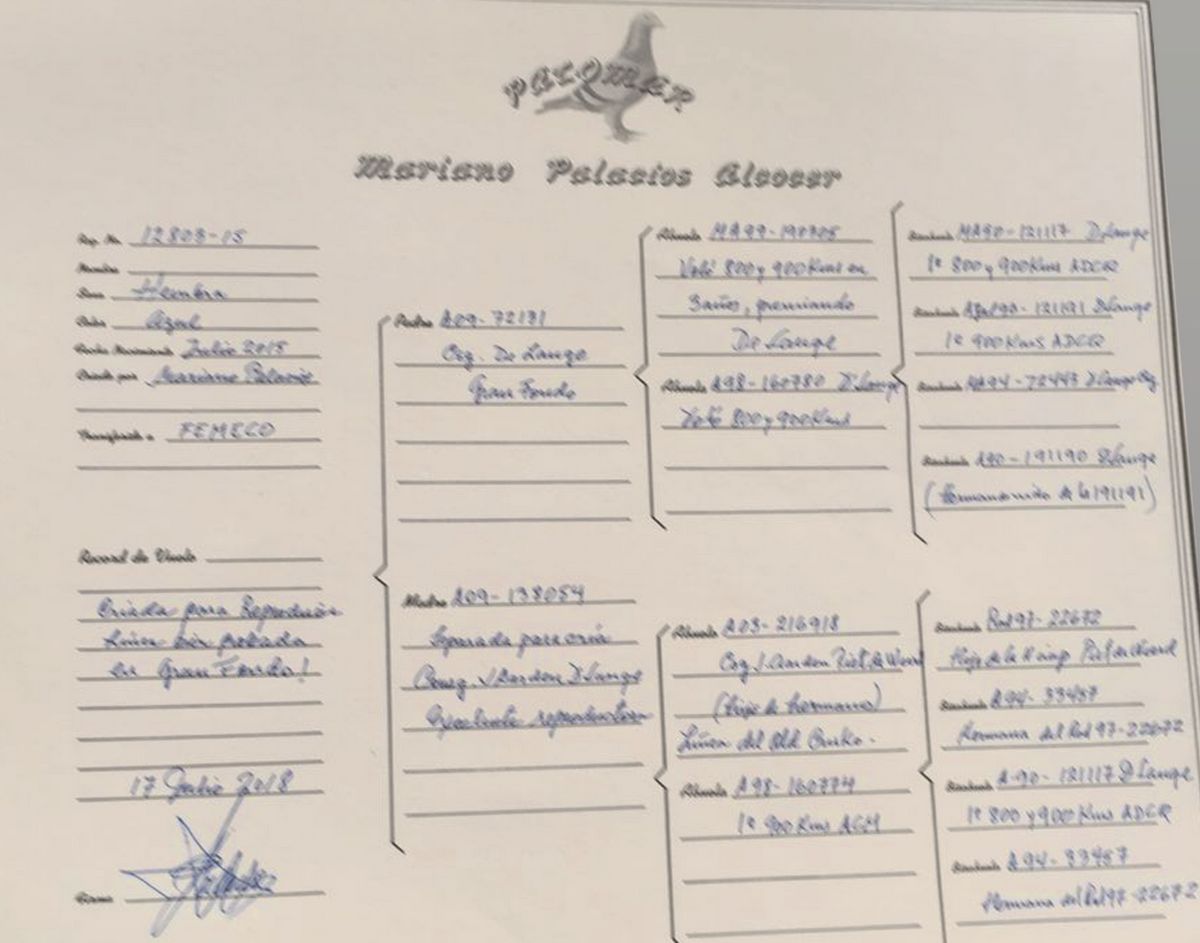 PALOMAR
Mariano Palacios Alcocer
Rep. No. 12803-15
Nombre
Sexo Hembra
Color Azul
Fecha Nacimiento Julio 2015
Criado por Mariano Palacios
Transferido a FEMECO
Record de Vuelo
Criada para Reproducción
Línea bien probada
en Gran Fondo!
17 Julio 2018
Firma
Padre A09-72131
Org. De Lange
Gran Fondo
Madre A09-138054
Separada para cría
Consg. V Barden D'Lange
Excelente reproductora
Abuelo MA99-190705
Voló 800 y 900 Kms en
3 años, premiando
De Lange
Abuela A98-160780 D'Lange
Voló 800 y 900 Kms
Abuelo A03-216918
(hijo de hermano)
Línea del Old
Abuela A98-160774
1º 900 Kms ACM
Bisabuelo MA90-121117 D'Lange
1º 800 y 900 Kms ADCQ
Bisabuela Azul 90-121191 D'Lange
1º 900 Kms ADCQ
Bisabuelo MA94-72443 D'Lange
Bisabuela A90-191190 D'Lange
(Hermana de la 191191)
Bisabuelo Rod 97-22672
Hijo de la King
Bisabuela A94-33457
Hermana del Rod 97-22672
Bisabuelo A-90-121117 D'Lange
1º 800 y 900 Kms ADCQ
Bisabuela A94-33457
Hermana del Rod 97-22672